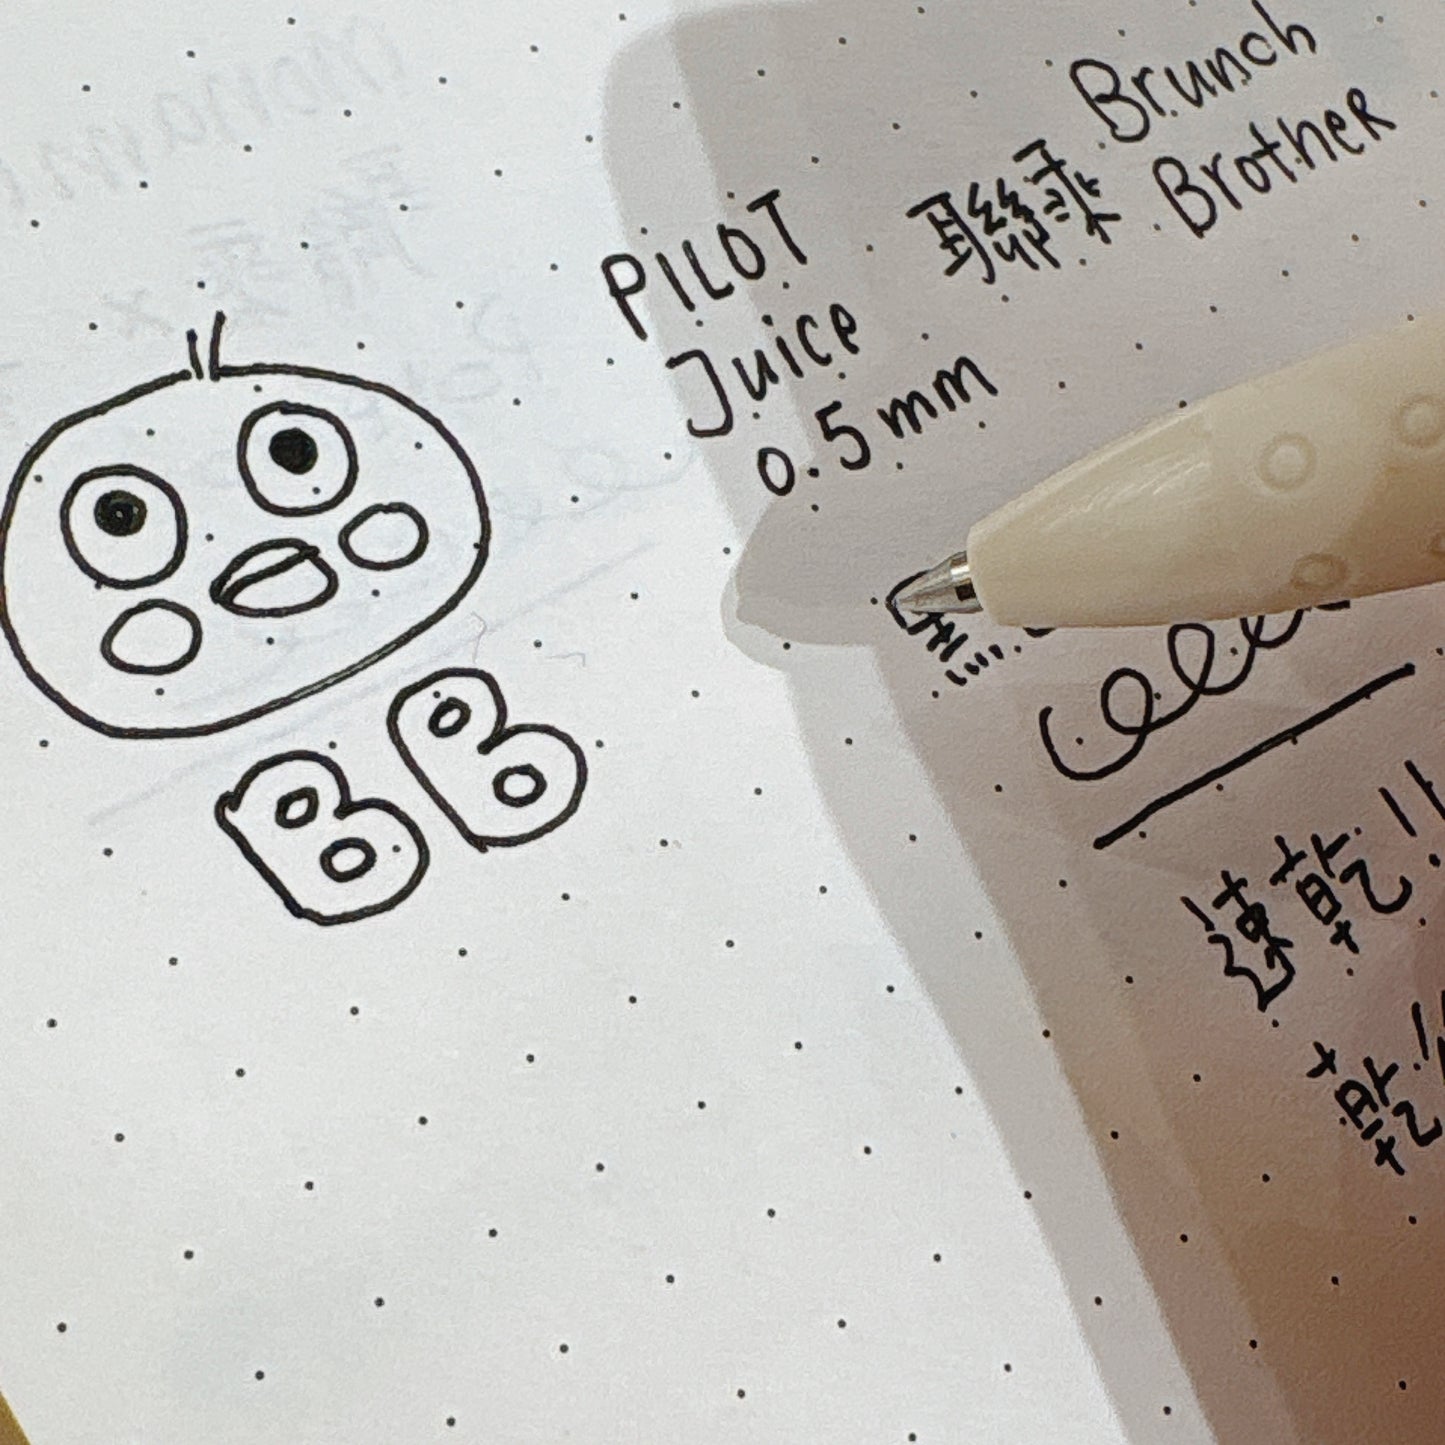 PILOT
Juice
0.5mm
聯乘
Brunch
Brother
BB
速乾!!
乾!